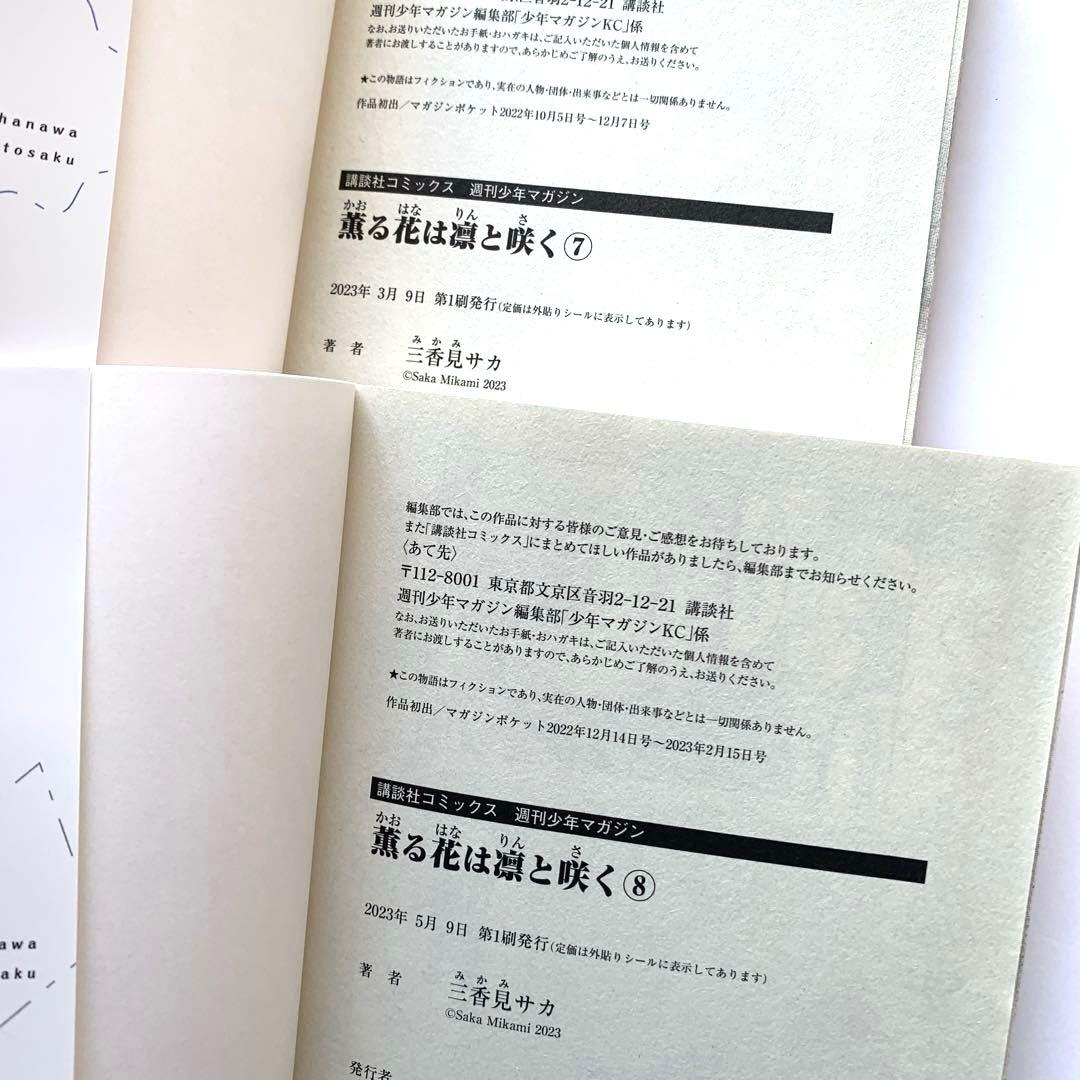 hanawa
tosaku
2-12-21 講談社
週刊少年マガジン編集部「少年マガジンKC」係
なお、お送りいただいたお手紙・おハガキは、ご記入いただいた個人情報を含めて
著者にお渡しすることがありますので、あらかじめご了解のうえ、お送りください。
★この物語はフィクションであり、実在の人物・団体・出来事などとは一切関係ありません。
作品初出／マガジンポケット2022年10月5日号～12月7日号
講談社コミックス 週刊少年マガジン
かお はな りん さ
薫る花は凛と咲く⑦
2023年 3月 9日 第1刷発行(定価は外貼りシールに表示してあります)
みかみ
著 者 三香見サカ
©Saka Mikami 2023
編集部では、この作品に対する皆様のご意見・ご感想をお待ちしております。
また「講談社コミックス」にまとめてほしい作品がありましたら、編集部までお知らせください。
〈あて先〉
〒112-8001 東京都文京区音羽2-12-21 講談社
週刊少年マガジン編集部「少年マガジンKC」係
なお、お送りいただいたお手紙・おハガキは、ご記入いただいた個人情報を含めて
著者にお渡しすることがありますので、あらかじめご了解のうえ、お送りください。
★この物語はフィクションであり、実在の人物・団体・出来事などとは一切関係ありません。
作品初出／マガジンポケット2022年12月14日号～2023年2月15日号
講談社コミックス 週刊少年マガジン
かお はな りん さ
薫る花は凛と咲く⑧
2023年 5月 9日 第1刷発行(定価は外貼りシールに表示してあります)
みかみ
著 者 三香見サカ
©Saka Mikami 2023
発行者
awa
aku